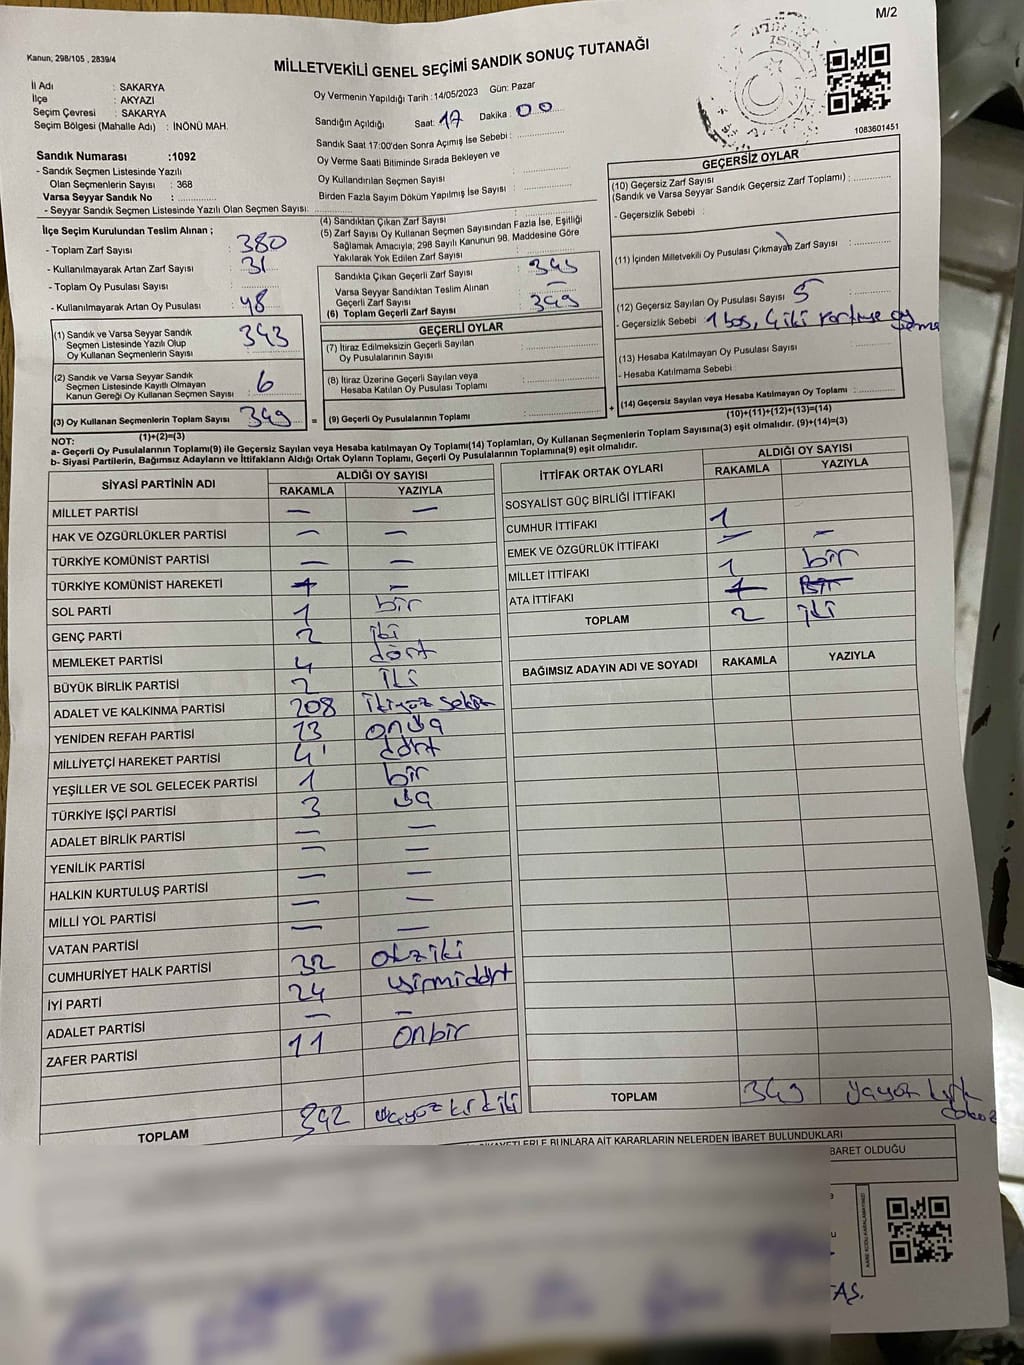 M/2
Kanun; 298/105 , 2839/4
MİLLETVEKİLİ GENEL SEÇİMİ SANDIK SONUÇ TUTANAĞI
İl Adı : SAKARYA
İlçe : AKYAZI
Seçim Çevresi : SAKARYA
Seçim Bölgesi (Mahalle Adı) : İNÖNÜ MAH.
Oy Vermenin Yapıldığı Tarih : 14/05/2023 Gün: Pazar
Sandığın Açıldığı Saat: 17 Dakika : 00
Sandık Saat 17:00'den Sonra Açımış İse Sebebi :
Oy Verme Saati Bitiminde Sırada Bekleyen ve
Oy Kullandırılan Seçmen Sayısı :
Birden Fazla Sayım Döküm Yapılmış İse Sayısı :
1083601451
Sandık Numarası :1092
- Sandık Seçmen Listesinde Yazılı
Olan Seçmenlerin Sayısı : 368
Varsa Seyyar Sandık No :
- Seyyar Sandık Seçmen Listesinde Yazılı Olan Seçmen Sayısı:
İlçe Seçim Kurulundan Teslim Alınan ;
- Toplam Zarf Sayısı : 380
- Kullanılmayarak Artan Zarf Sayısı : 31
- Toplam Oy Pusulası Sayısı :
- Kullanılmayarak Artan Oy Pusulası : 48
(1) Sandık ve Varsa Seyyar Sandık
Seçmen Listesinde Yazılı Olup
Oy Kullanan Seçmenlerin Sayısı : 343
(2) Sandık ve Varsa Seyyar Sandık
Seçmen Listesinde Kayıtlı Olmayan
Kanun Gereği Oy Kullanan Seçmen Sayısı : 6
(3) Oy Kullanan Seçmenlerin Toplam Sayısı : 349 =
(1)+(2)=(3)
(4) Sandıktan Çıkan Zarf Sayısı :
(5) Zarf Sayısı Oy Kullanan Seçmen Sayısından Fazla İse, Eşitliği
Sağlamak Amacıyla; 298 Sayılı Kanunun 98. Maddesine Göre
Yakılarak Yok Edilen Zarf Sayısı :
Sandıkta Çıkan Geçerli Zarf Sayısı : 349
Varsa Seyyar Sandıktan Teslim Alınan
Geçerli Zarf Sayısı : —
(6) Toplam Geçerli Zarf Sayısı : 349
GEÇERLİ OYLAR
(7) İtiraz Edilmeksizin Geçerli Sayılan
Oy Pusulalarının Sayısı :
(8) İtiraz Üzerine Geçerli Sayılan veya
Hesaba Katılan Oy Pusulası Toplamı :
(9) Geçerli Oy Pusulalarının Toplamı : +
GEÇERSİZ OYLAR
(10) Geçersiz Zarf Sayısı
(Sandık ve Varsa Seyyar Sandık Geçersiz Zarf Toplamı) :
- Geçersizlik Sebebi :
(11) İçinden Milletvekili Oy Pusulası Çıkmayan Zarf Sayısı :
(12) Geçersiz Sayılan Oy Pusulası Sayısı : 5
- Geçersizlik Sebebi : 1 boş, 4 iki partiye oy
(13) Hesaba Katılmayan Oy Pusulası Sayısı :
- Hesaba Katılmama Sebebi :
(14) Geçersiz Sayılan veya Hesaba Katılmayan Oy Toplamı :
(10)+(11)+(12)+(13)=(14)
NOT:
a- Geçerli Oy Pusulalarının Toplamı(9) ile Geçersiz Sayılan veya Hesaba katılmayan Oy Toplamı(14) Toplamları, Oy Kullanan Seçmenlerin Toplam Sayısına(3) eşit olmalıdır. (9)+(14)=(3)
b- Siyasi Partilerin, Bağımsız Adayların ve İttifakların Aldığı Ortak Oyların Toplamı, Geçerli Oy Pusulalarının Toplamına(9) eşit olmalıdır.
SİYASİ PARTİNİN ADI ALDIĞI OY SAYISI
RAKAMLA YAZIYLA
MİLLET PARTİSİ — —
HAK VE ÖZGÜRLÜKLER PARTİSİ — —
TÜRKİYE KOMÜNİST PARTİSİ — —
TÜRKİYE KOMÜNİST HAREKETİ 1 —
SOL PARTİ 1 bir
GENÇ PARTİ 2 iki
MEMLEKET PARTİSİ 4 dört
BÜYÜK BİRLİK PARTİSİ 2 iki
ADALET VE KALKINMA PARTİSİ 208 ikiyüz sekiz
YENİDEN REFAH PARTİSİ 13 onüç
MİLLİYETÇİ HAREKET PARTİSİ 41 dört
YEŞİLLER VE SOL GELECEK PARTİSİ 1 bir
TÜRKİYE İŞÇİ PARTİSİ 3 üç
ADALET BİRLİK PARTİSİ — —
YENİLİK PARTİSİ — —
HALKIN KURTULUŞ PARTİSİ — —
MİLLİ YOL PARTİSİ — —
VATAN PARTİSİ — —
CUMHURİYET HALK PARTİSİ 32 otuziki
İYİ PARTİ 24 yirmidört
ADALET PARTİSİ — —
ZAFER PARTİSİ 11 onbir
TOPLAM 342
İTTİFAK ORTAK OYLARI ALDIĞI OY SAYISI
RAKAMLA YAZIYLA
SOSYALİST GÜÇ BİRLİĞİ İTTİFAKI
CUMHUR İTTİFAKI 1
EMEK VE ÖZGÜRLÜK İTTİFAKI — —
MİLLET İTTİFAKI 1 bir
ATA İTTİFAKI 1 Bir
TOPLAM 2 iki
BAĞIMSIZ ADAYIN ADI VE SOYADI RAKAMLA YAZIYLA
TOPLAM 349
ŞİKAYETLERLE BUNLARA AİT KARARLARIN NELERDEN İBARET BULUNDUKLARI
BARET OLDUĞU